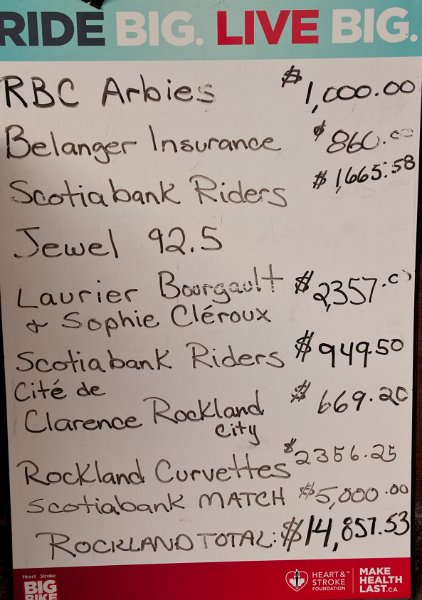 RIDE BIG. LIVE BIG.
RBC Arbies $1,000.00
Belanger Insurance $860.00
Scotiabank Riders $1,665.58
Jewel 92.5
Laurier Bourgault $2,357.00
& Sophie Cléroux
Scotiabank Riders $949.50
Cité de
Clarence Rockland $669.20
City
Rockland Curvettes $2356.25
Scotiabank MATCH $5,000.00
ROCKLAND TOTAL: $14,857.53
Heart Stroke
BIG
BIKE
HEART&™
STROKE
FOUNDATION
MAKE
HEALTH
LAST.CA